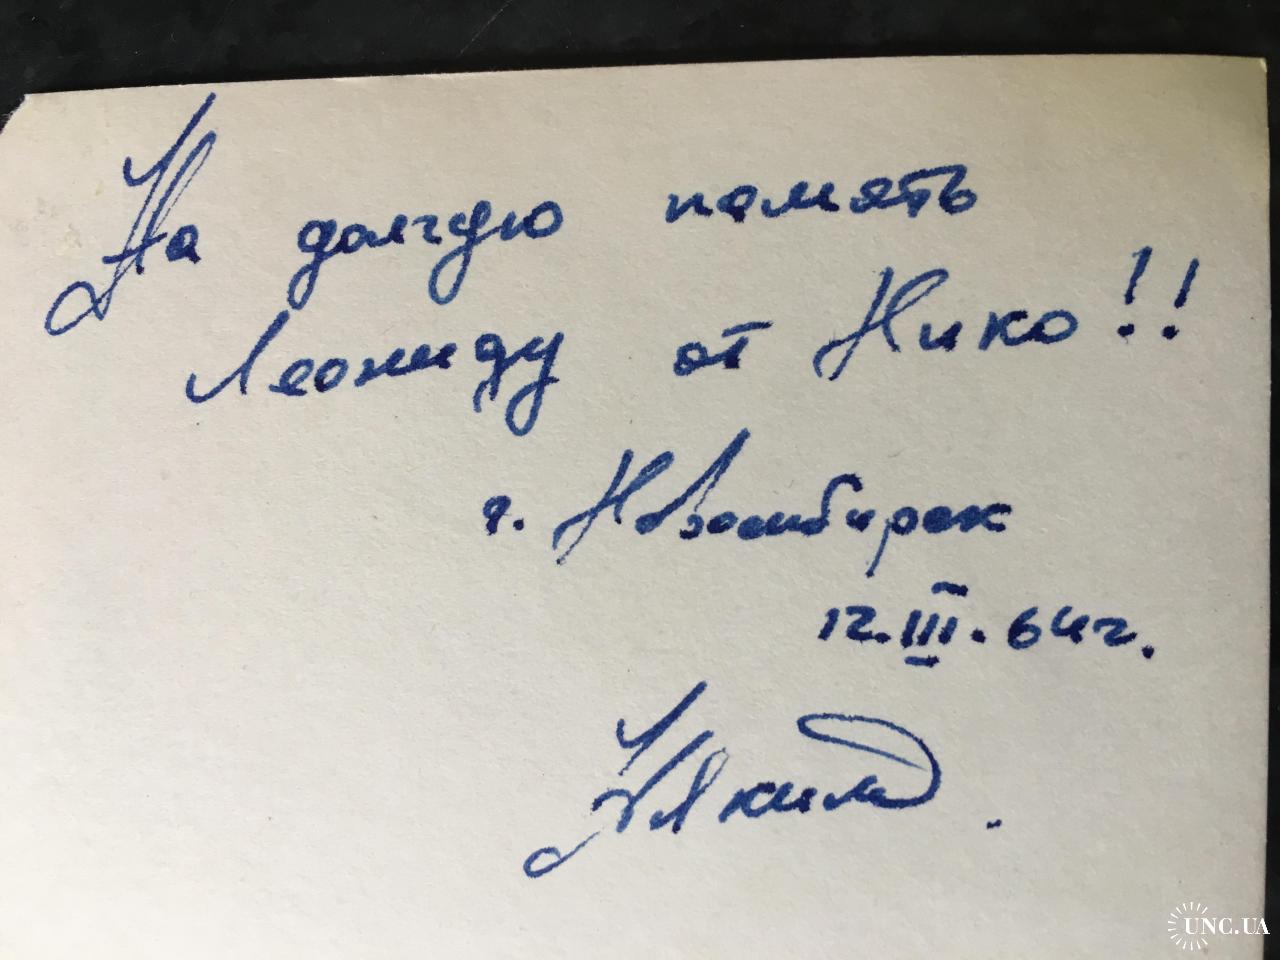 На долгую память
Леониду от Нико!!
г. Новосибирск
12.III.64г.
UNC.UA